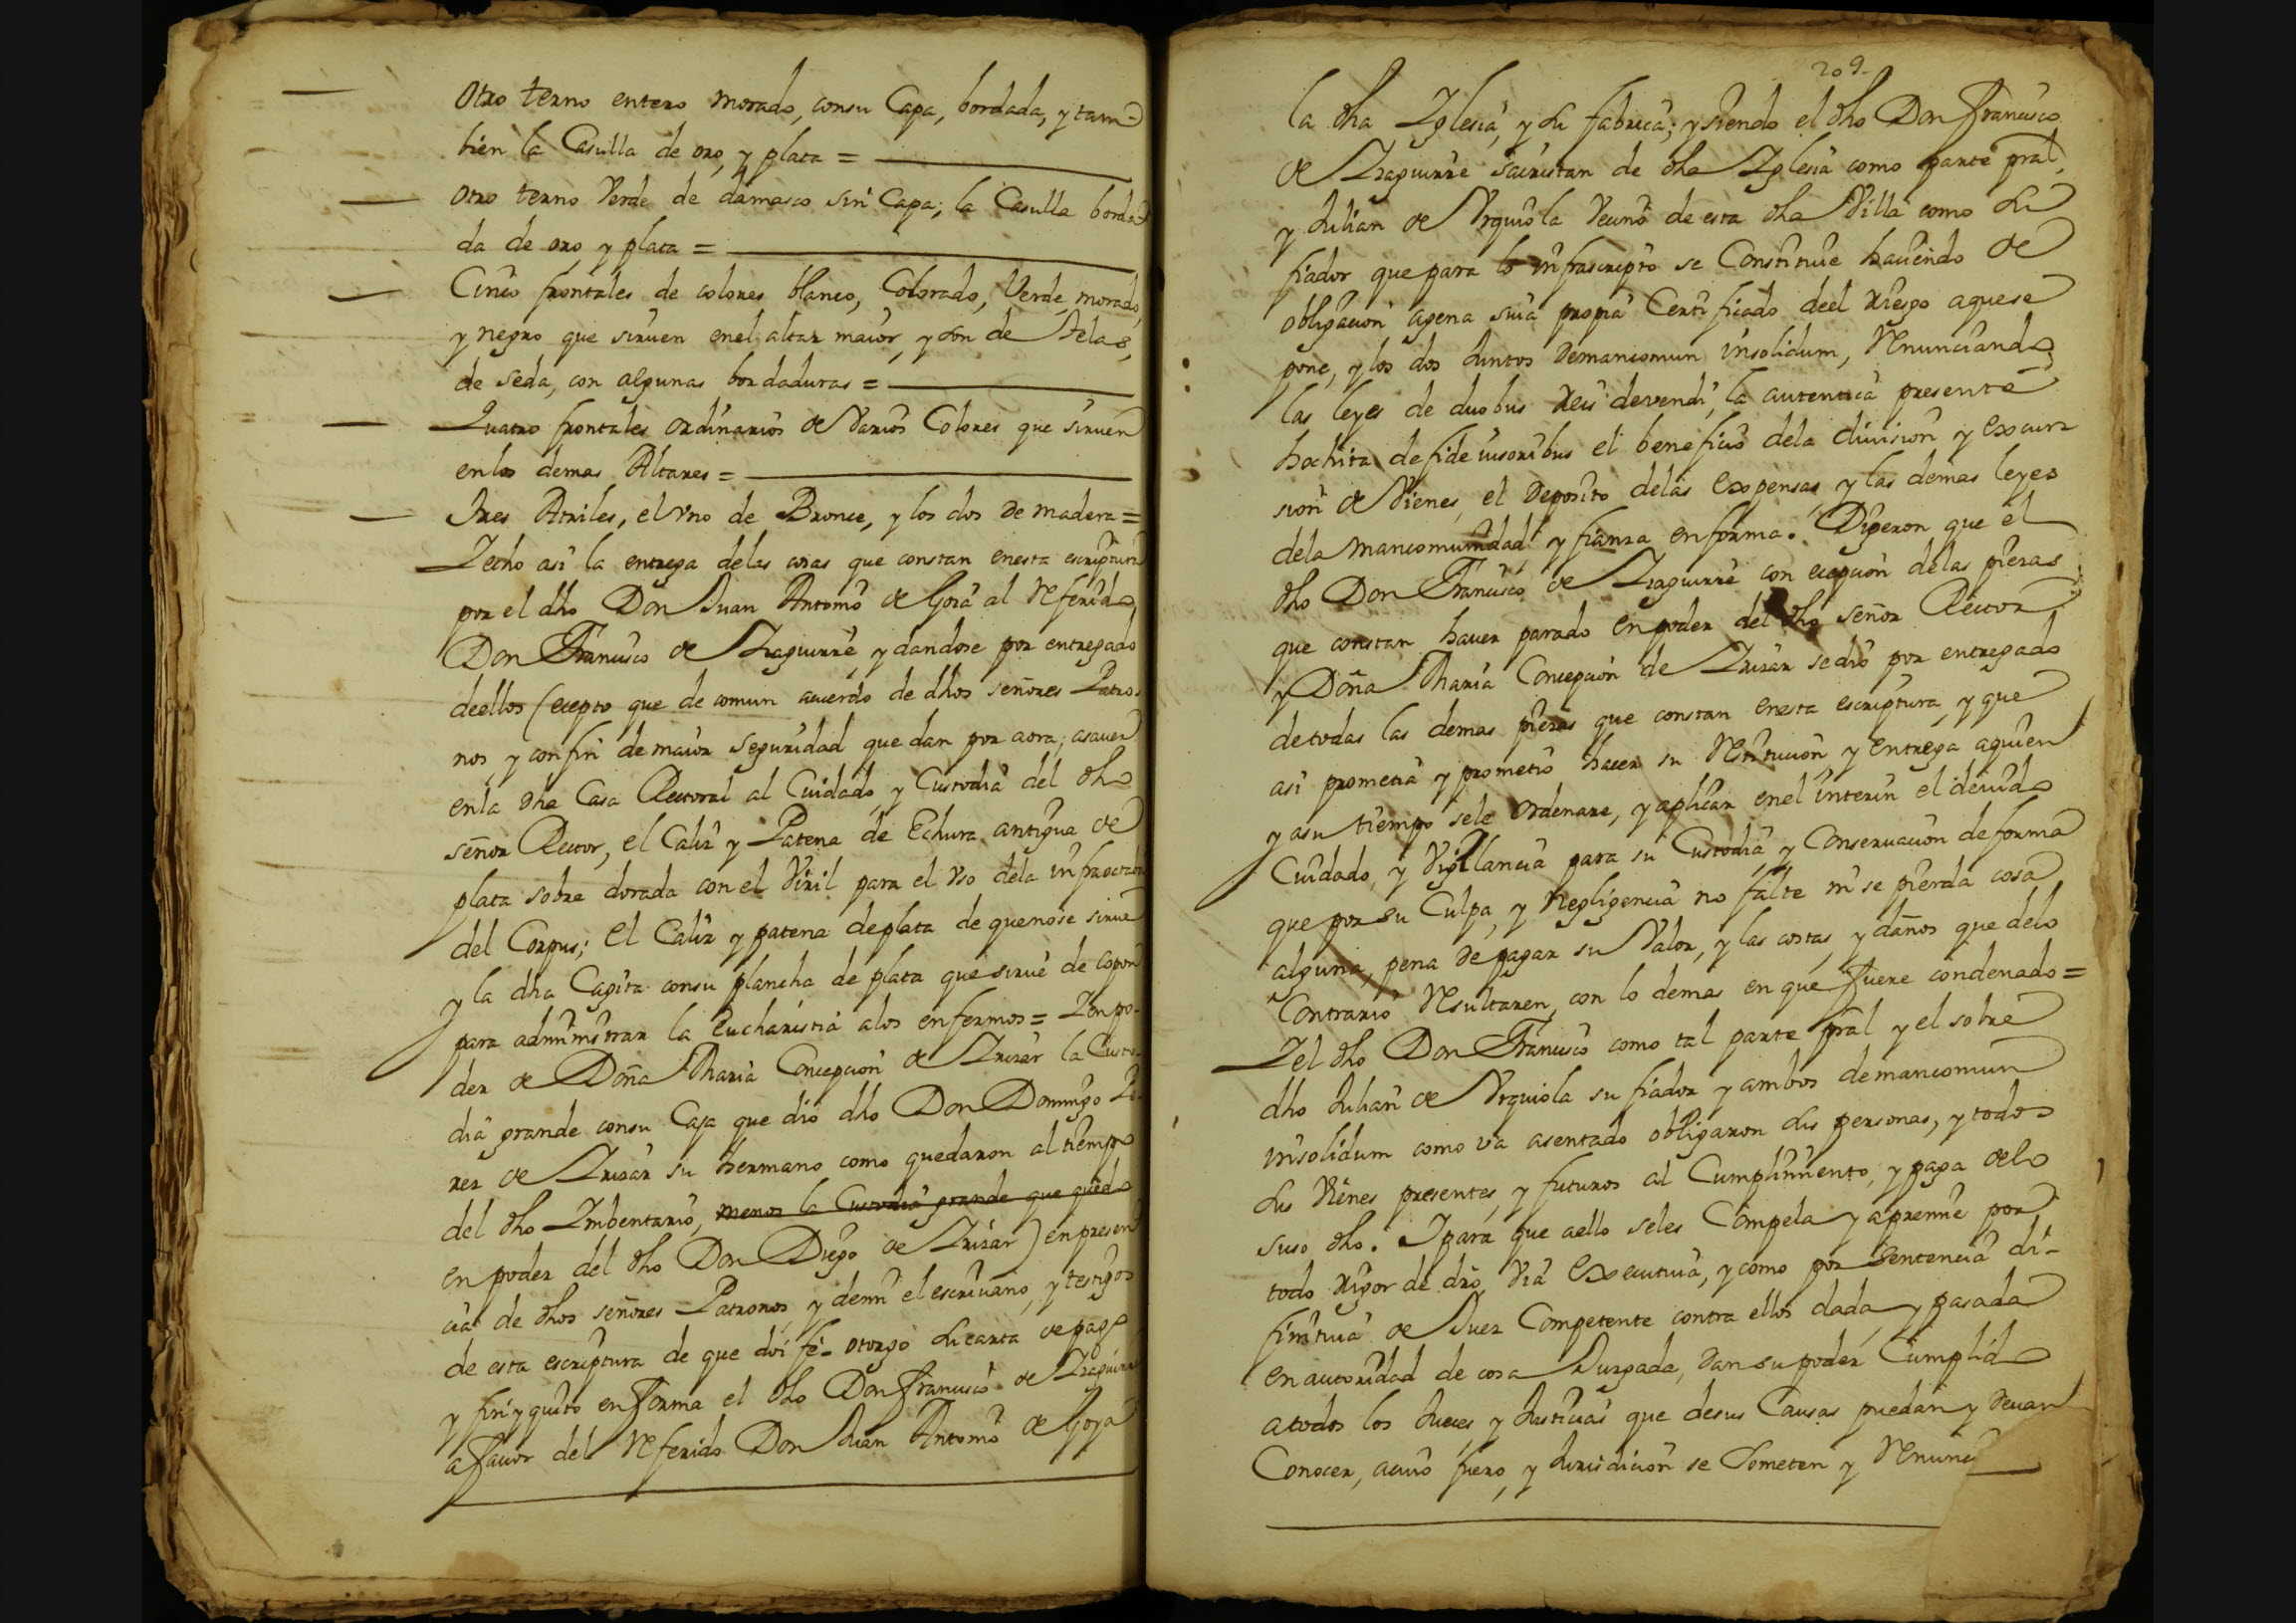 Otro terno entero morado, consu Capa, bordada, y tam-
bien la Casulla de oro, y plata =
Otro terno Verde de damasco sin Capa; la Casulla borda-
da de oro y plata =
Cinco frontales de colores blanco, Colorado, Verde, morado,
y negro que siruen enel altar maior, y son de telas,
de seda, con algunas bordaduras =
Quatro frontales ordinarios de Varios Colores que siruen
enlos demas Altares =
Tres Atriles, el vno de Bronce, y los dos de madera =
Y echo asi la entrega delas cosas que constan enesta escriptura
por el dho Don Juan Antonio de Goia al Referido
Don Francisco de Yzaguirre, y dandose por entregado
deellos (ecepto que de comun acuerdo de dhos señores Patro-
nos, y con fin de maior seguridad quedan por aora; asauer
enla dha Casa Rectoral al Cuidado, y Custodia del dho
señor Rector, el Caliz y Patena de Echura antigua de
plata sobre dorada con el Viril para el vso dela infraoctaba
del Corpus; el Caliz y patena deplata de quenose sirue
y la dha Cagita consu plancha de plata que sirue de copon
para administrar la Eucharistia alos enfermos = Y enpo-
der de Doña Maria Concepcion de Yrizar la Custo-
dia grande consu Caja que dio dho Don Domingo Pe-
rez de Yrizar su hermano como quedaron al tiempo
del dho Ymbentario, menos la Custodia grande que quedo
en poder del dho Don Diego de Yrizar) en presen-
cia de dhos señores Patronos, y demi el escriuano, y testigos
de esta escriptura de que doi fe- otorgo su carta de pago
y fin y quito en forma el dho Don Francisco de Yzaguirre
afauor del Referido Don Juan Antonio de Goya
209.
la dha Yglesia, y su fabrica; y siendo el dho Don Francisco
de Yzaguirre sacristan de dha Yglesia como parte pral,
y Julian de Vrquiola Vecino de esta dha Villa como su
fiador que para lo infrascripto se Constituie hauiendo de
obligacion agena suia propia Certificado deel riesgo aquese
pone, y los dos Juntos demancomun insolidum, Renunciando
las leyes de duobus Reis devendi, la autentica presente
hochita de fide iusoribus el beneficio dela diuision y Excur-
sion de Vienes, el Deposito delas Expensas, y las demas leyes
dela mancomunidad y fianza en forma. Digeron que el
dho Don Francisco de Yzaguirre con ecepcion delas piezas
que constan hauer parado enpoder del dho señor Rector
y Doña Maria Concepcion de Yrizar sedio por entregado
detodas las demas piezas que constan enesta escriptura, y que
asi prometia y prometio hacer su Restitucion, y Entrega aquien
y asu tiempo sele ordenare, y aplicar enel interin el deuido
Cuidado, y Vigillancia para su Custodia, y Conseruacion deforma
que por su Culpa, y negligencia no falte ni se pierda cosa
alguna, pena de pagar su Valor, y las costas, y daños que delo
Contrario Resultaren, con lo demas en que fuere condenado =
Y el dho Don Francisco como tal parte pral y el sobre
dho Julian de Vrquiola su fiador y ambos demancomun
insolidum como va asentado obligaron sus personas, y todos
sus Vienes presentes, y futuros al Cumplimiento, y paga delo
suso dho. Y para que aello seles Compela y apremie por
todo rigor de dro, Via Executiua, y como por Sentencia di-
finitiua de Juez Competente contra ellos dada, y pasada
en autoridad de cosa Juzgada, dan su poder Cumplido
atodos los Jueces, y Justicias que desus Causas puedan y deuan
Conocer, acuio fuero, y Jurisdicion se Someten y